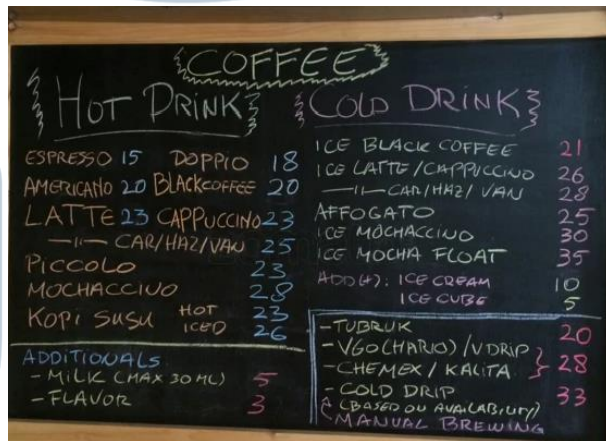 COFFEE
HOT DRINK
ESPRESSO 15 DOPPIO 18
AMERICANO 20 BLACKCOFFEE 20
LATTE 23 CAPPUCCINO 23
—11— CAR/HAZ/VAN 25
PICCOLO 23
MOCHACCINO 28
KOPI SUSU HOT 23
ICED 26
ADDITIONALS
- MILK (MAX 30 ML) 5
- FLAVOR 3
COLD DRINK
ICE BLACK COFFEE 21
ICE LATTE/CAPPUCCINO 26
—11— CAR/HAZ/VAN 28
AFFOGATO 25
ICE MOCHACCINO 30
ICE MOCHA FLOAT 35
ADD(+): ICE CREAM 10
ICE CUBE 5
- TUBRUK 20
- V60 (HARIO) / V DRIP
- CHEMEX / KALITA } 28
- COLD DRIP 33
(BASED ON AVAILABILITY)
MANUAL BREWING